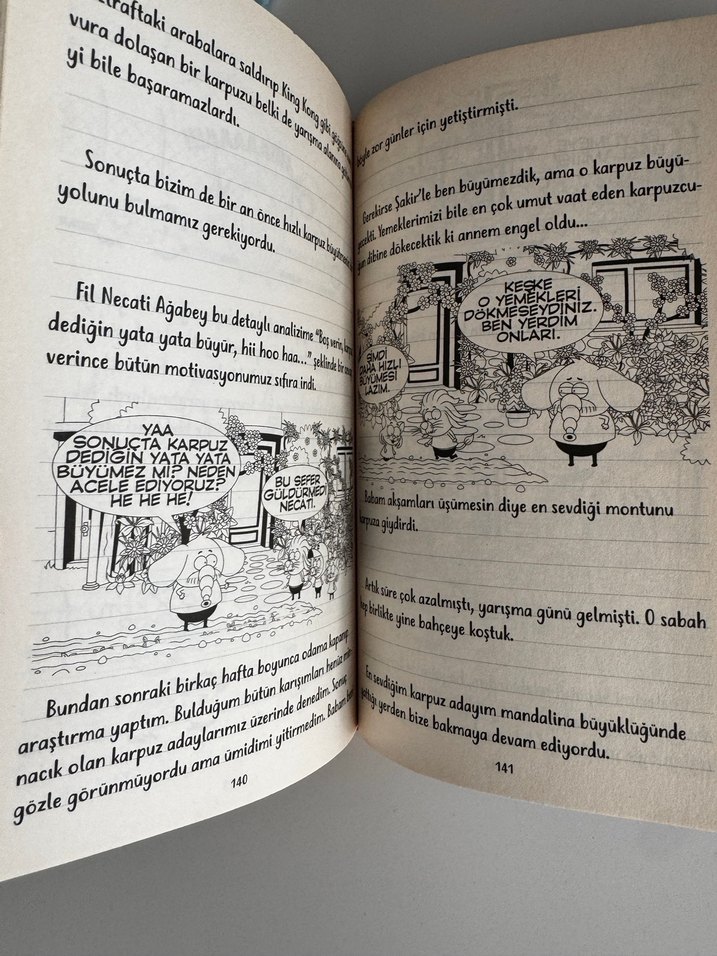 arabalara saldırıp King Kong gibi
vura dolaşan bir karpuzu belki de yarışma alanına
yi bile başaramazlardı.
Sonuçta bizim de bir an önce hızlı karpuz
yolunu bulmamız gerekiyordu.
Fil Necati Ağabey bu detaylı analizime “Boş verin,
dediğin yata yata büyür, hii hoo haa...” şeklinde bir
verince bütün motivasyonumuz sıfıra indi.
YAA
SONUÇTA KARPUZ
DEDİĞİN YATA YATA
BÜYÜMEZ Mİ? NEDEN
ACELE EDİYORUZ?
HE HE HE!
BU SEFER
GÜLDÜRMEDİ
NECATİ.
Bundan sonraki birkaç hafta boyunca odama kapanıp
araştırma yaptım. Bulduğum bütün karışımları henüz
nacık olan karpuz adaylarımız üzerinde denedim. Sonuç
gözle görünmüyordu ama ümidimi yitirmedim. Babam
140
böyle zor günler için yetiştirmişti.
Gerekirse Şakir’le ben büyümezdik, ama o karpuz büyü-
yecekti. Yemeklerimizi bile en çok umut vaat eden karpuzcu-
ğun dibine dökecektik ki annem engel oldu...
KEŞKE
O YEMEKLERİ
DÖKMESEYDİNİZ.
BEN YERDİM
ONLARI.
ŞİMDİ
DAHA HIZLI
BÜYÜMESİ
LAZIM.
Babam akşamları üşümesin diye en sevdiği montunu
karpuza giydirdi.
Artık süre çok azalmıştı, yarışma günü gelmişti. O sabah
hep birlikte yine bahçeye koştuk.
En sevdiğim karpuz adayım mandalina büyüklüğünde
yattığı yerden bize bakmaya devam ediyordu.
141